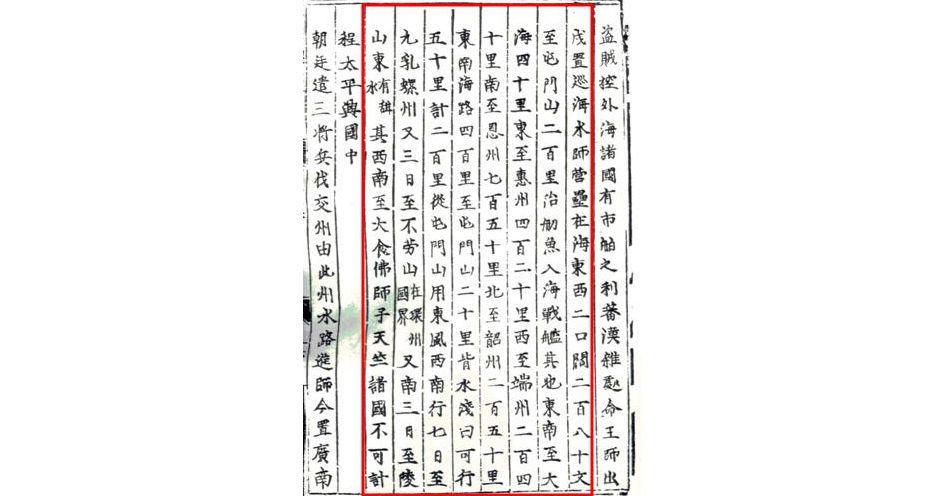 盜賊控外海諸國有市舶之利蕃漢雜處命王師出
戍置巡海水師營壘在海東西二口闊二百八十文
至屯門山二百里治舠魚入海戰艦其也東南至大
海四十里東至惠州四百二十里西至端州二百四
十里南至恩州七百五十里北至韶州二百五十里
東南海路四百里至屯門山二十里皆水淺曰可行
五十里計二百里從屯門山用東風西南行七日至
九乳螺州又三日至不勞山在環州國界又南三日至陵
山東有甜水其西南至大食佛師子天竺諸國不可計
程太平興國中
朝廷遣三將兵伐交州由此州水路進師今置廣南